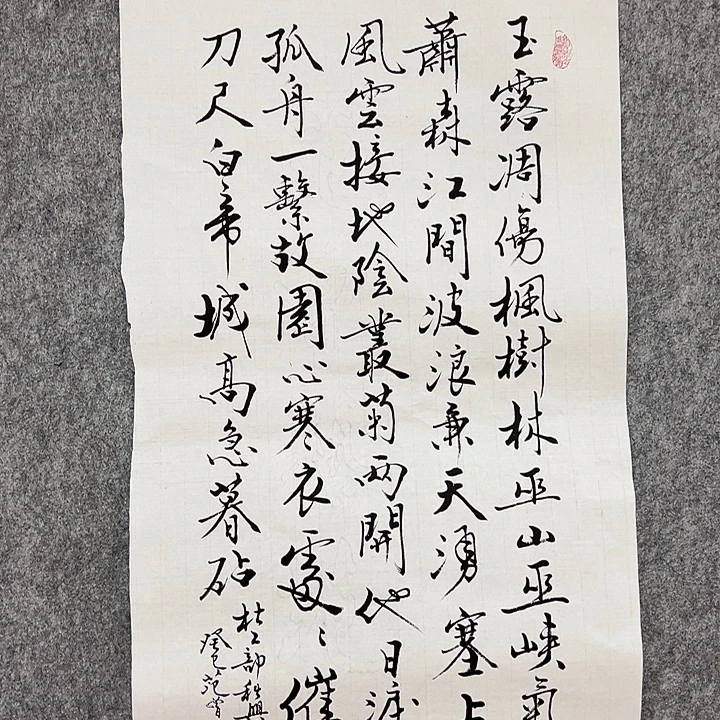 玉露凋傷楓樹林巫山巫峽氣
蕭森江間波浪兼天湧塞上
風雲接地陰叢菊兩開他日淚
孤舟一繫故園心寒衣處〻催
刀尺白帝城高急暮砧
杜工部秋興
癸巳